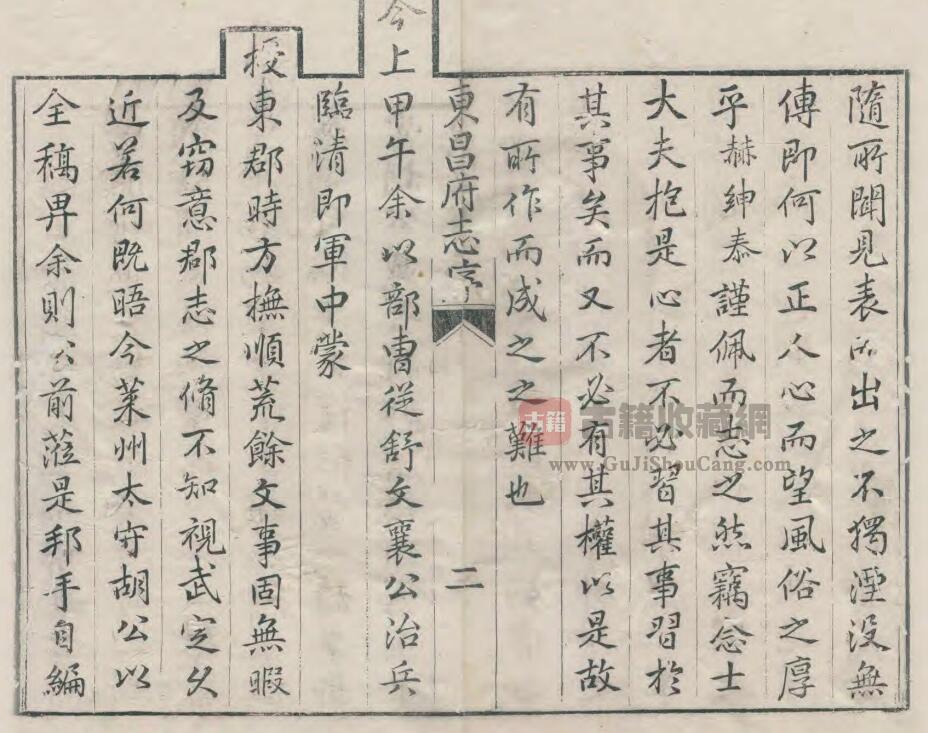 隨所聞見表而出之不獨湮没無
傳即何以正人心而望風俗之厚
乎赫紳泰謹佩而志之然竊念士
大夫抱是心者不必習其事習於
其事矣而又不必有其權以是故
有所作而成之之難也
東昌府志序
二
今上甲午余以部曹從舒文襄公治兵
臨清即軍中蒙
授東郡時方撫順荒餘文事固無暇
及窃意郡志之脩不知視武定久
近若何既晤今萊州太守胡公以
全稿畀余則公前蒞是邦手自編
古籍
古籍收藏網
www.GuJiShouCang.com